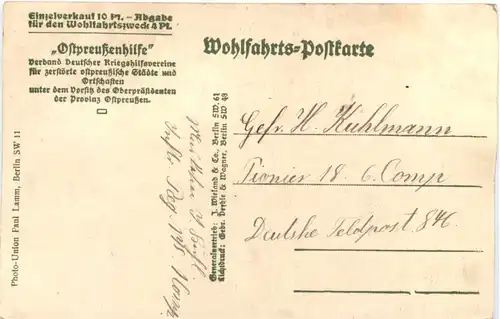 Einzelverkauf 10 Pf. - Abgabe
für den Wohlfahrtszweck 4 Pf.
„Ostpreußenhilfe"
Verband Deutscher Kriegshilfsvereine
für zerstörte ostpreußische Städte und
Ortschaften
unter dem Vorsitz des Oberpräsidenten
der Provinz Ostpreußen.
Wohlfahrts-Postkarte
Photo-Union Paul Lamm, Berlin SW 11
Reg. 138.
Generalvertrieb: J. Wieland & Co. Berlin SW. 61
Lichtdruck: Gebr. & Wagner, Berlin SW 48
Gefr. H. Kuhlmann
Pionier 18 6. Comp
Deutsche Feldpost 846